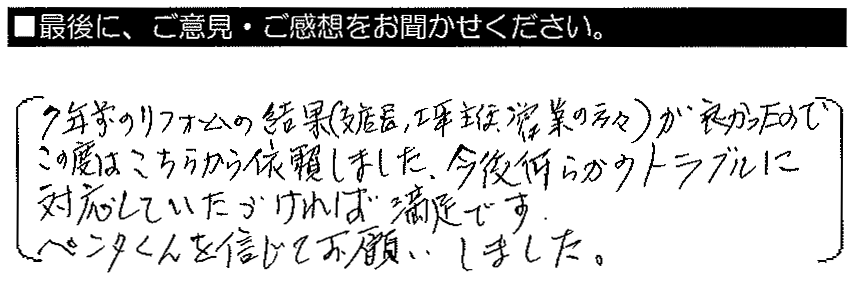 ■最後に、ご意見・ご感想をお聞かせください。
7年前のリフォームの結果(支店長,工事主任,営業の方々)が良かったので
この度はこちらから依頼しました、今後何らかのトラブルに
対応していただければ満足です.
ペンタくんを信じてお願いしました。